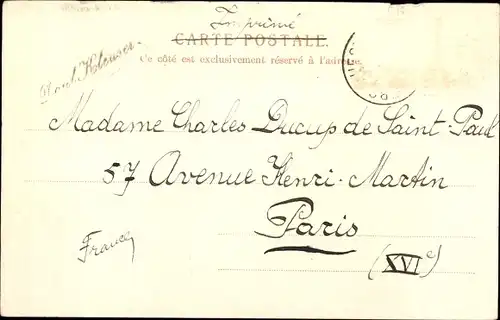 Imprimé
CARTE POSTALE.
Ce côté est exclusivement réservé à l'adresse.
Madame Charles Ducup de Saint-Paul
57 Avenue Henri-Martin
Paris
France
(XVIe)